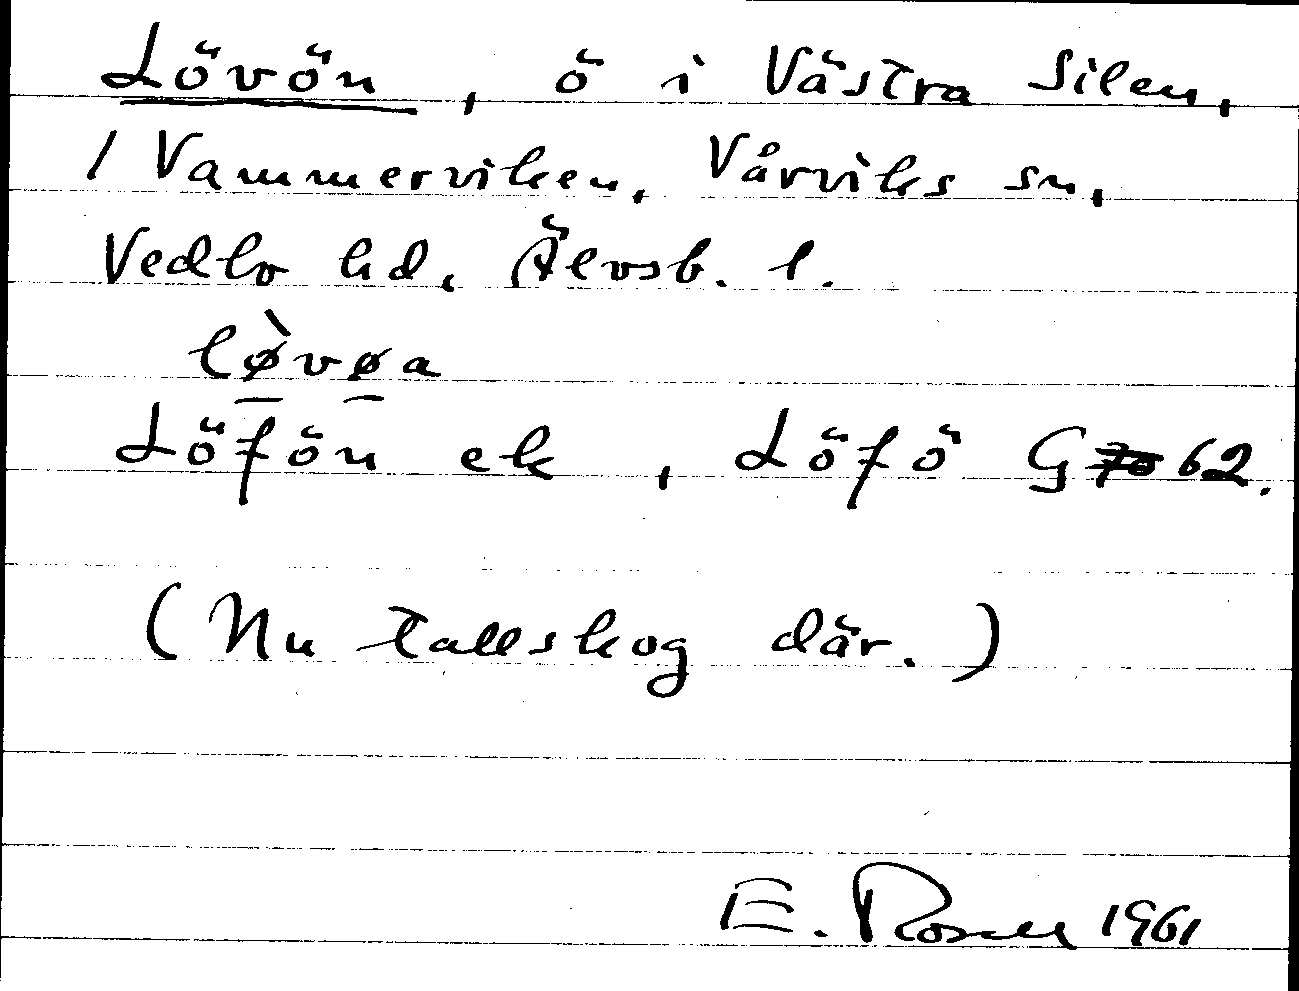 Lövön, ö i Västra Silen,
/ Vammerviken, Vårviks sn,
Vedbo hd, Älvsb. l.
lø̀vøa
Löfön ek, Löfö G 62.
(Nu tallskog där.)
E. Rosell 1961